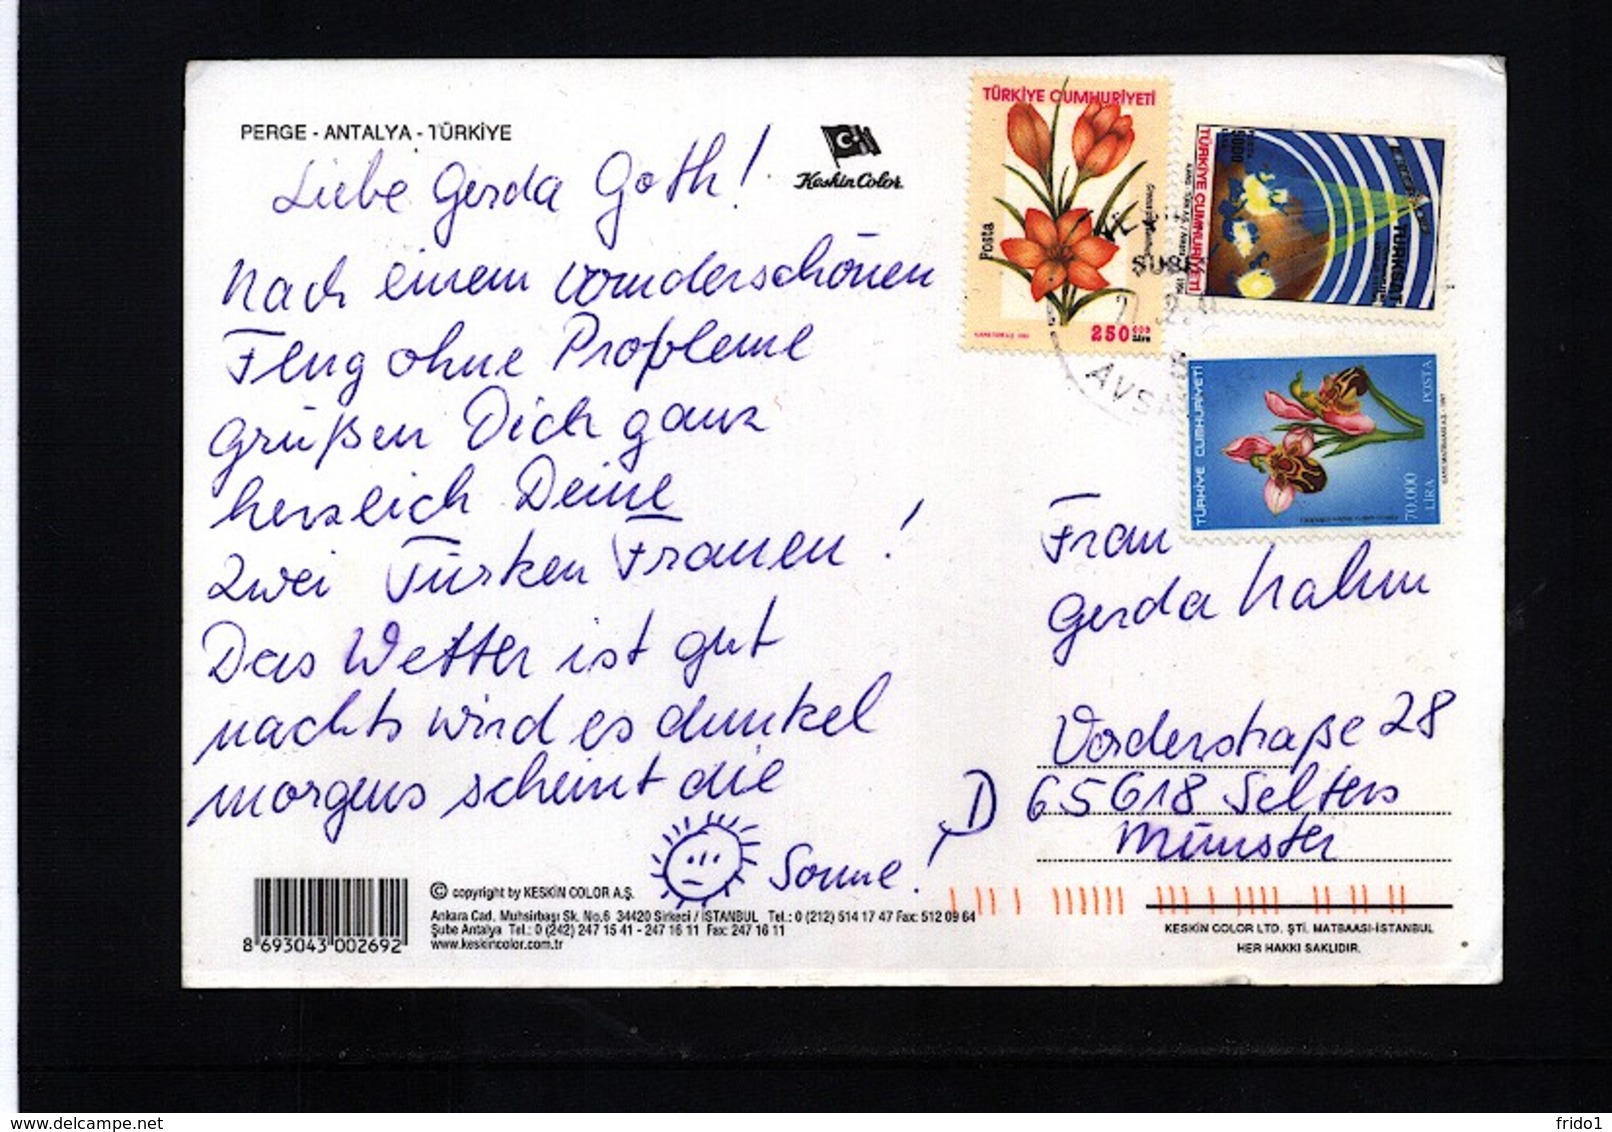 PERGE - ANTALYA - TÜRKİYE
Keskin Color
Liebe Gerda Goth!
Nach einem wunderschönen
Flug ohne Probleme
Grüßen Dich ganz
herzlich Deine
zwei Türken Frauen!
Das Wetter ist gut
nachts wird es dunkel
morgens scheint die
Sonne!
TÜRKİYE CUMHURİYETİ
Posta
250 000
Lira
TÜRKİYE CUMHURİYETİ
TÜRKSAT
TÜRKİYE CUMHURİYETİ
POSTA
70.000
LİRA
Frau
Gerda Hahn
Vorderstraße 28
D 65618 Selters
Münster
8 693043 002692
© copyright by KESKİN COLOR A.Ş.
Ankara Cad. Muhsirbaşı Sk. No.6 34420 Sirkeci / İSTANBUL Tel.: 0 (212) 514 17 47 Fax: 512 09 64
Şube Antalya Tel.: 0 (242) 247 15 41 - 247 16 11 Fax: 247 16 11
www.keskincolor.com.tr
KESKİN COLOR LTD. ŞTİ. MATBAASI-İSTANBUL
HER HAKKI SAKLIDIR.
delcampe.net
frido1